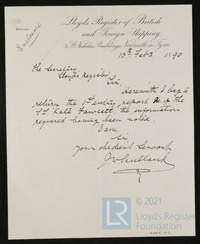 Enclosure
Lloyd's Register of British
and Foreign Shipping,
3, St Nicholas Buildings, Newcastle-on-Tyne
13th Feby 1890
The Secretary
Lloyd's Register
Sir
Herewith I beg to
return the 1st entry report on the
S.S. Kate Fawcett, the information
required having been noted
I am,
Sir
Your obedient Servant
© 2021
Lloyd's Register
Foundation